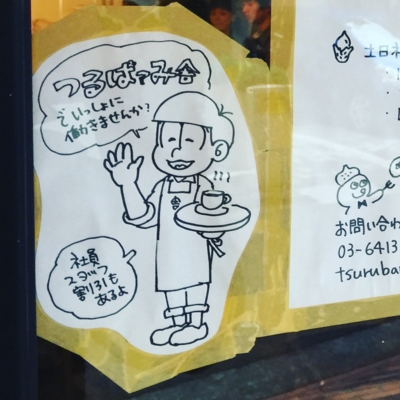 つるばみ舎
でいっしょに
働きませんか?
社員
スタッフ
割引も
あるよ
土日
お問い合わ
03-6413
tsuruba